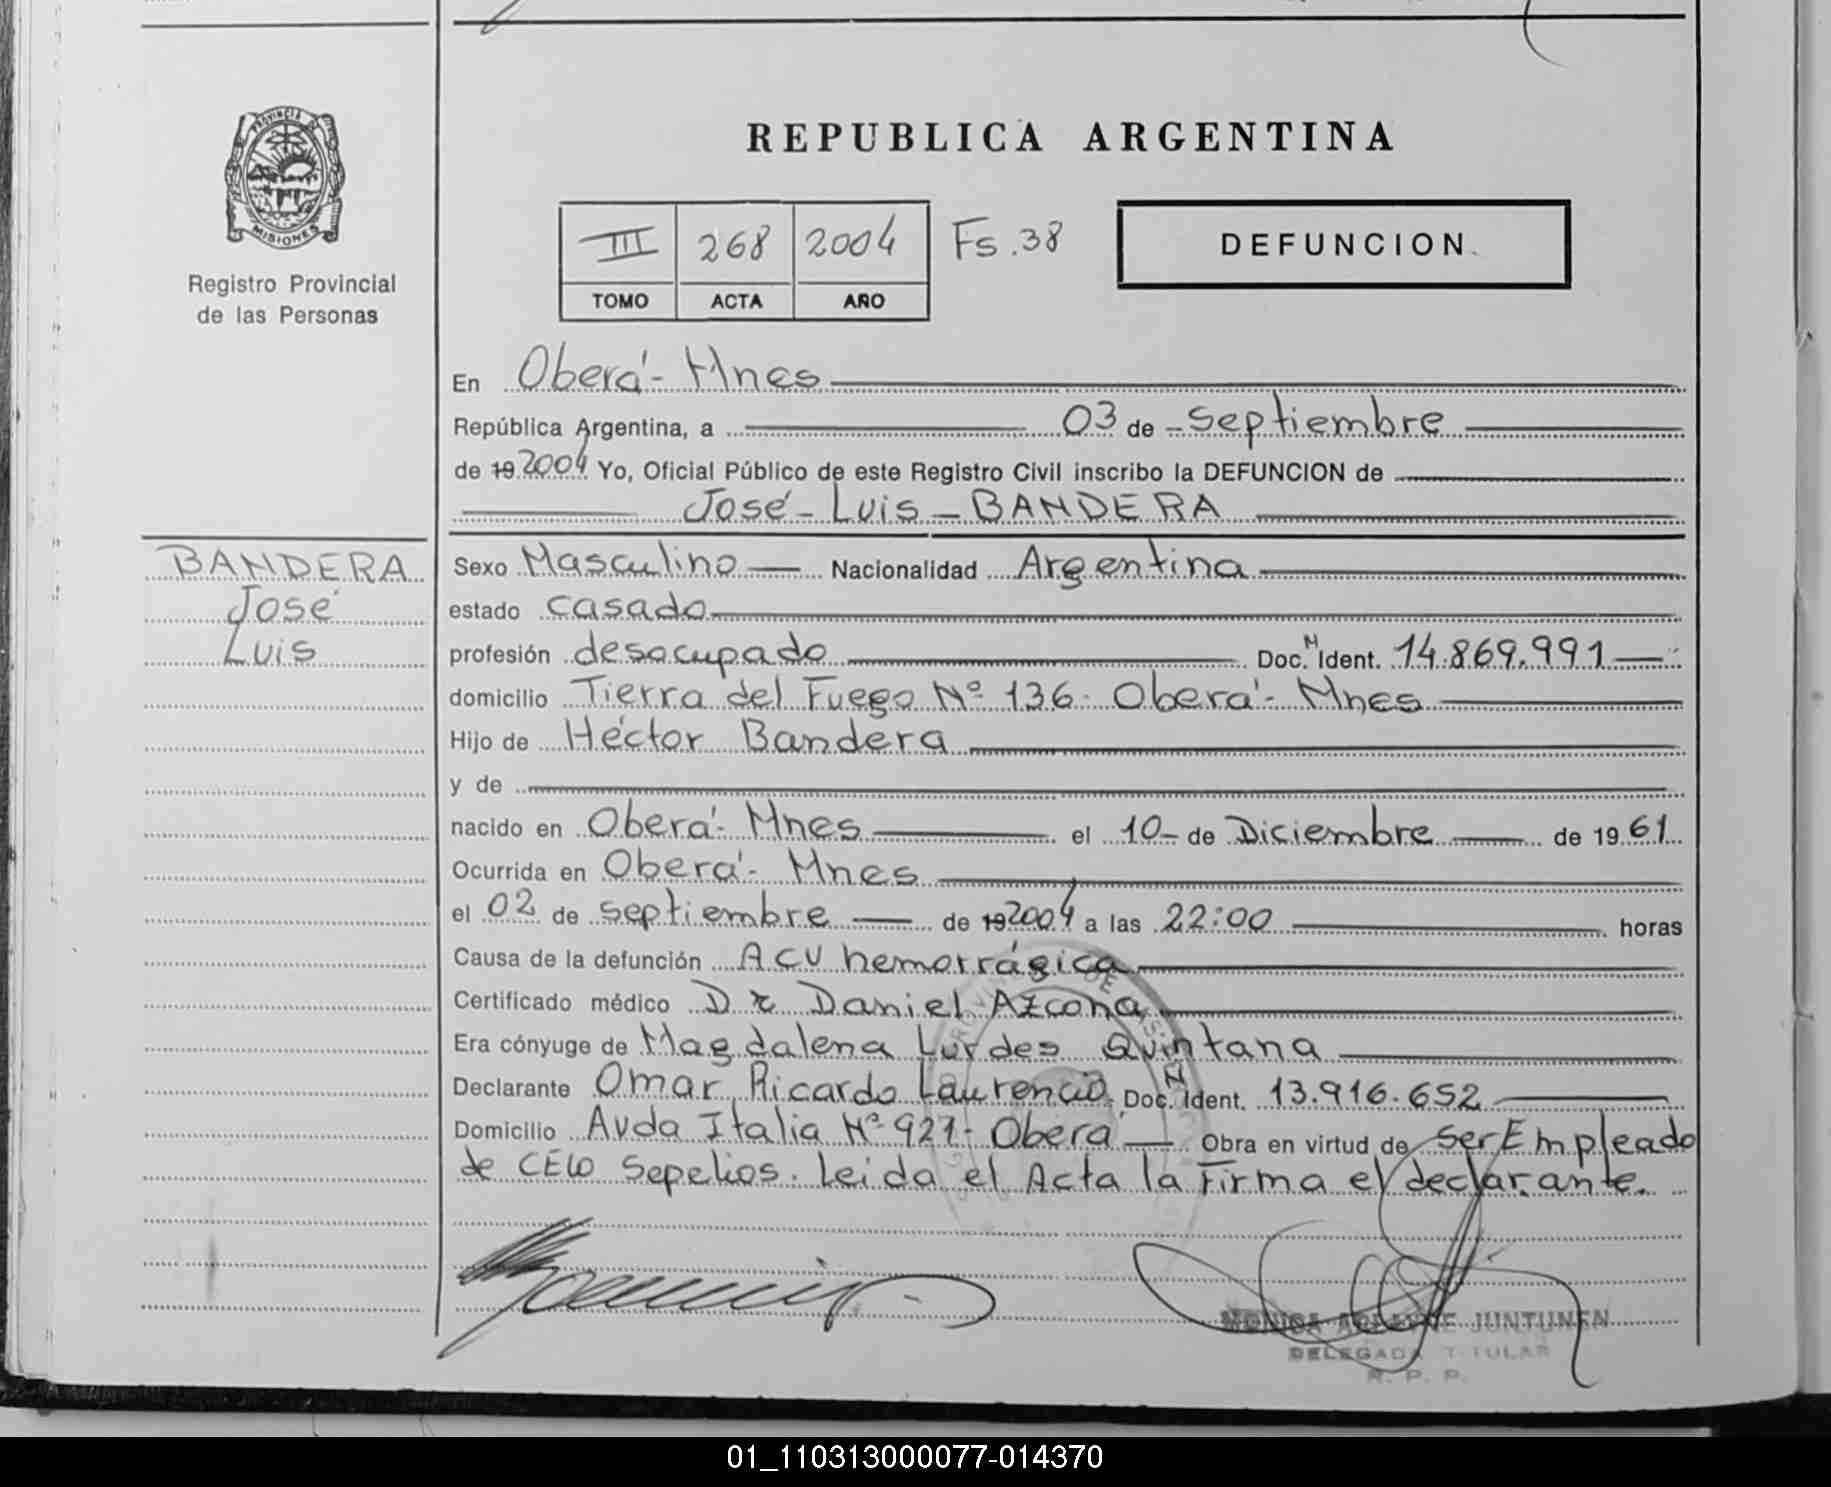 PROVINCIA DE
MISIONES
Registro Provincial
de las Personas
REPUBLICA ARGENTINA
III 268 2004 Fs. 38
TOMO ACTA AÑO
DEFUNCION
En Oberá - Mnes
República Argentina, a 03 de septiembre
de 19 2004 Yo, Oficial Público de este Registro Civil inscribo la DEFUNCION de
José - Luis - BANDERA
BANDERA
José
Luis
Sexo Masculino Nacionalidad Argentina
estado casado
profesión desocupado Doc. N Ident. 14.869.991
domicilio Tierra del Fuego Nº 136 - Oberá - Mnes
Hijo de Héctor Bandera
y de
nacido en Oberá - Mnes el 10 - de Diciembre de 19 61
Ocurrida en Oberá - Mnes
el 02 de septiembre de 19 2004 a las 22:00 horas
Causa de la defunción ACV hemorrágica
Certificado médico Dr Daniel Azcona
Era cónyuge de Magdalena Lurdes Quintana
Declarante Omar Ricardo Laurencio Doc. N Ident. 13.916.652
Domicilio Avda Italia Nº 927 - Oberá Obra en virtud de ser Empleado
de CELO Sepelios. Leida el Acta la Firma el declarante.
MONICA JUNTUNEN
DELEGADA TITULAR
R. P. P.
01_110313000077-014370